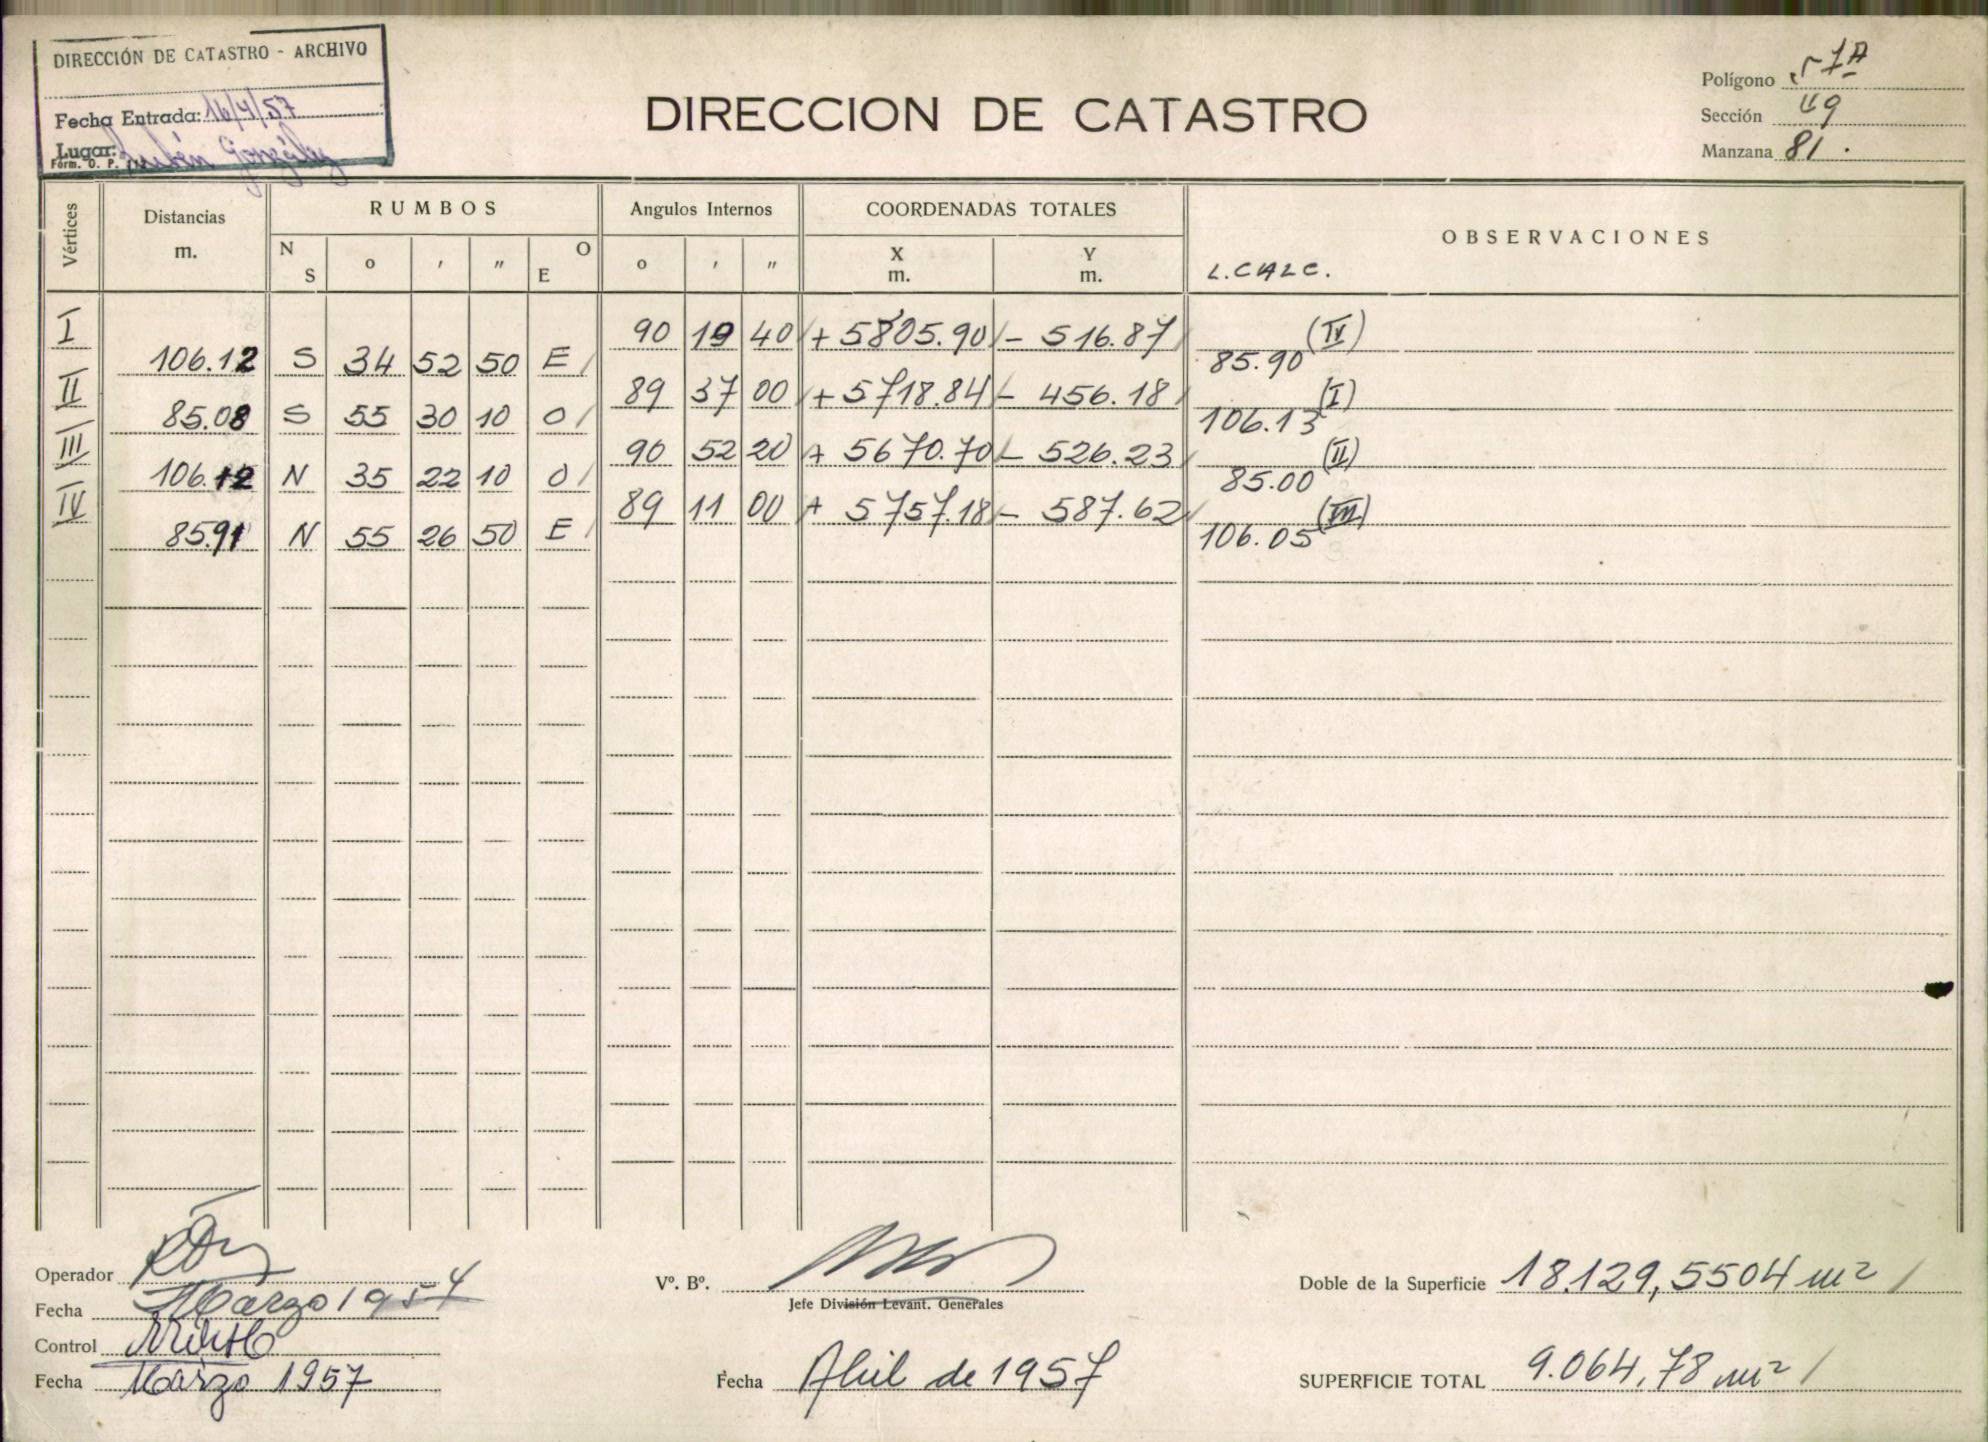 DIRECCIÓN DE CATASTRO - ARCHIVO
Fecha Entrada: 16/4/57
Lugar: Rubén González
Form. O. P.
DIRECCION DE CATASTRO
Polígono 57A
Sección 49
Manzana 81.
Vértices Distancias m. RUMBOS Angulos Internos COORDENADAS TOTALES OBSERVACIONES
N S o ' " O E o ' " X m. Y m. L.CALC.
I 90 19 40 + 5805.90 - 516.87 (IV)
106.12 S 34 52 50 E 85.90
II 89 37 00 + 5718.84 - 456.18 (I)
85.08 S 55 30 10 O 106.13
III 90 52 20 + 5670.70 - 526.23 (II)
106.12 N 35 22 10 O 85.00
IV 89 11 00 + 5757.18 - 587.62 (III)
85.91 N 55 26 50 E 106.05
Operador
Fecha Marzo 1957
Control
Fecha Marzo 1957
Vº. Bº.
Jefe División Levant. Generales
Fecha Abril de 1957
Doble de la Superficie 18.129,5504 m2
SUPERFICIE TOTAL 9.064,78 m2